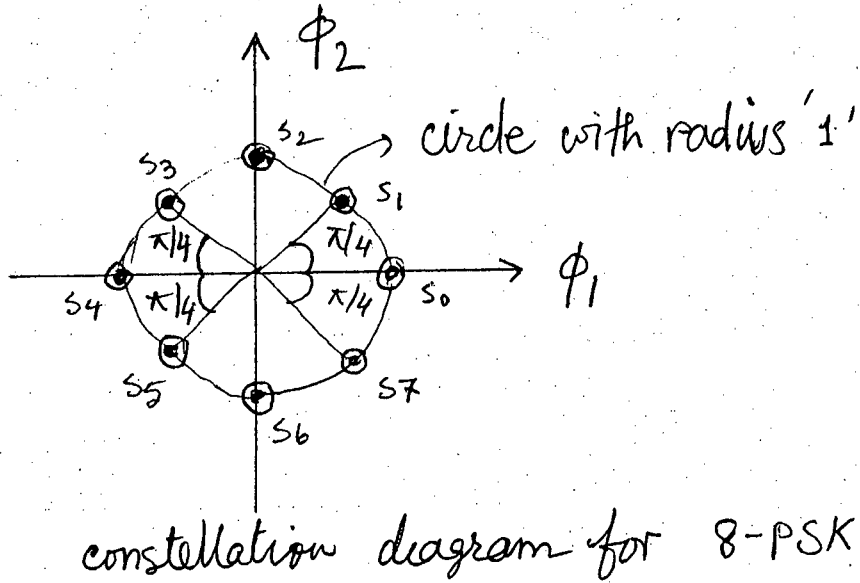 ϕ2
circle with radius '1'
s2
s3
s1
π/4
π/4
s4
π/4
π/4
s0
ϕ1
s5
s7
s6
constellation diagram for 8-PSK